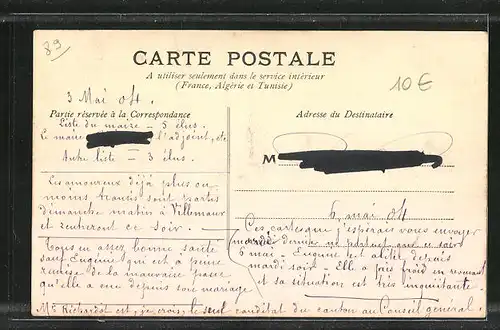 89
CARTE POSTALE
A utiliser seulement dans le service intérieur
(France, Algérie et Tunisie)
10€
3 Mai 04.
Partie réservée à la Correspondance
Adresse du Destinataire
Liste du maire - 5 élus.
Le maire l'adjoint, etc
Autre liste - 3 élus.
M
Les amoureux déjà plus ou
moins trantis sont partis
dimanche matin à Villemaur
et rentreront ce soir.
Tous en assez bonne santé
sauf Eugénie qui est à peine
remise de la mauvaise passe
qu'elle a eue depuis son mariage
6 mai 04
Ces cartes que j'espérais vous envoyer
mardi dernier ne partent que ce soir
6 mai - Eugénie est alitée depuis
mardi soir - Elle a pris froid en
et sa situation est très inquiétante.
Mr Richardot est, je crois, le seul candidat du canton au Conseil général